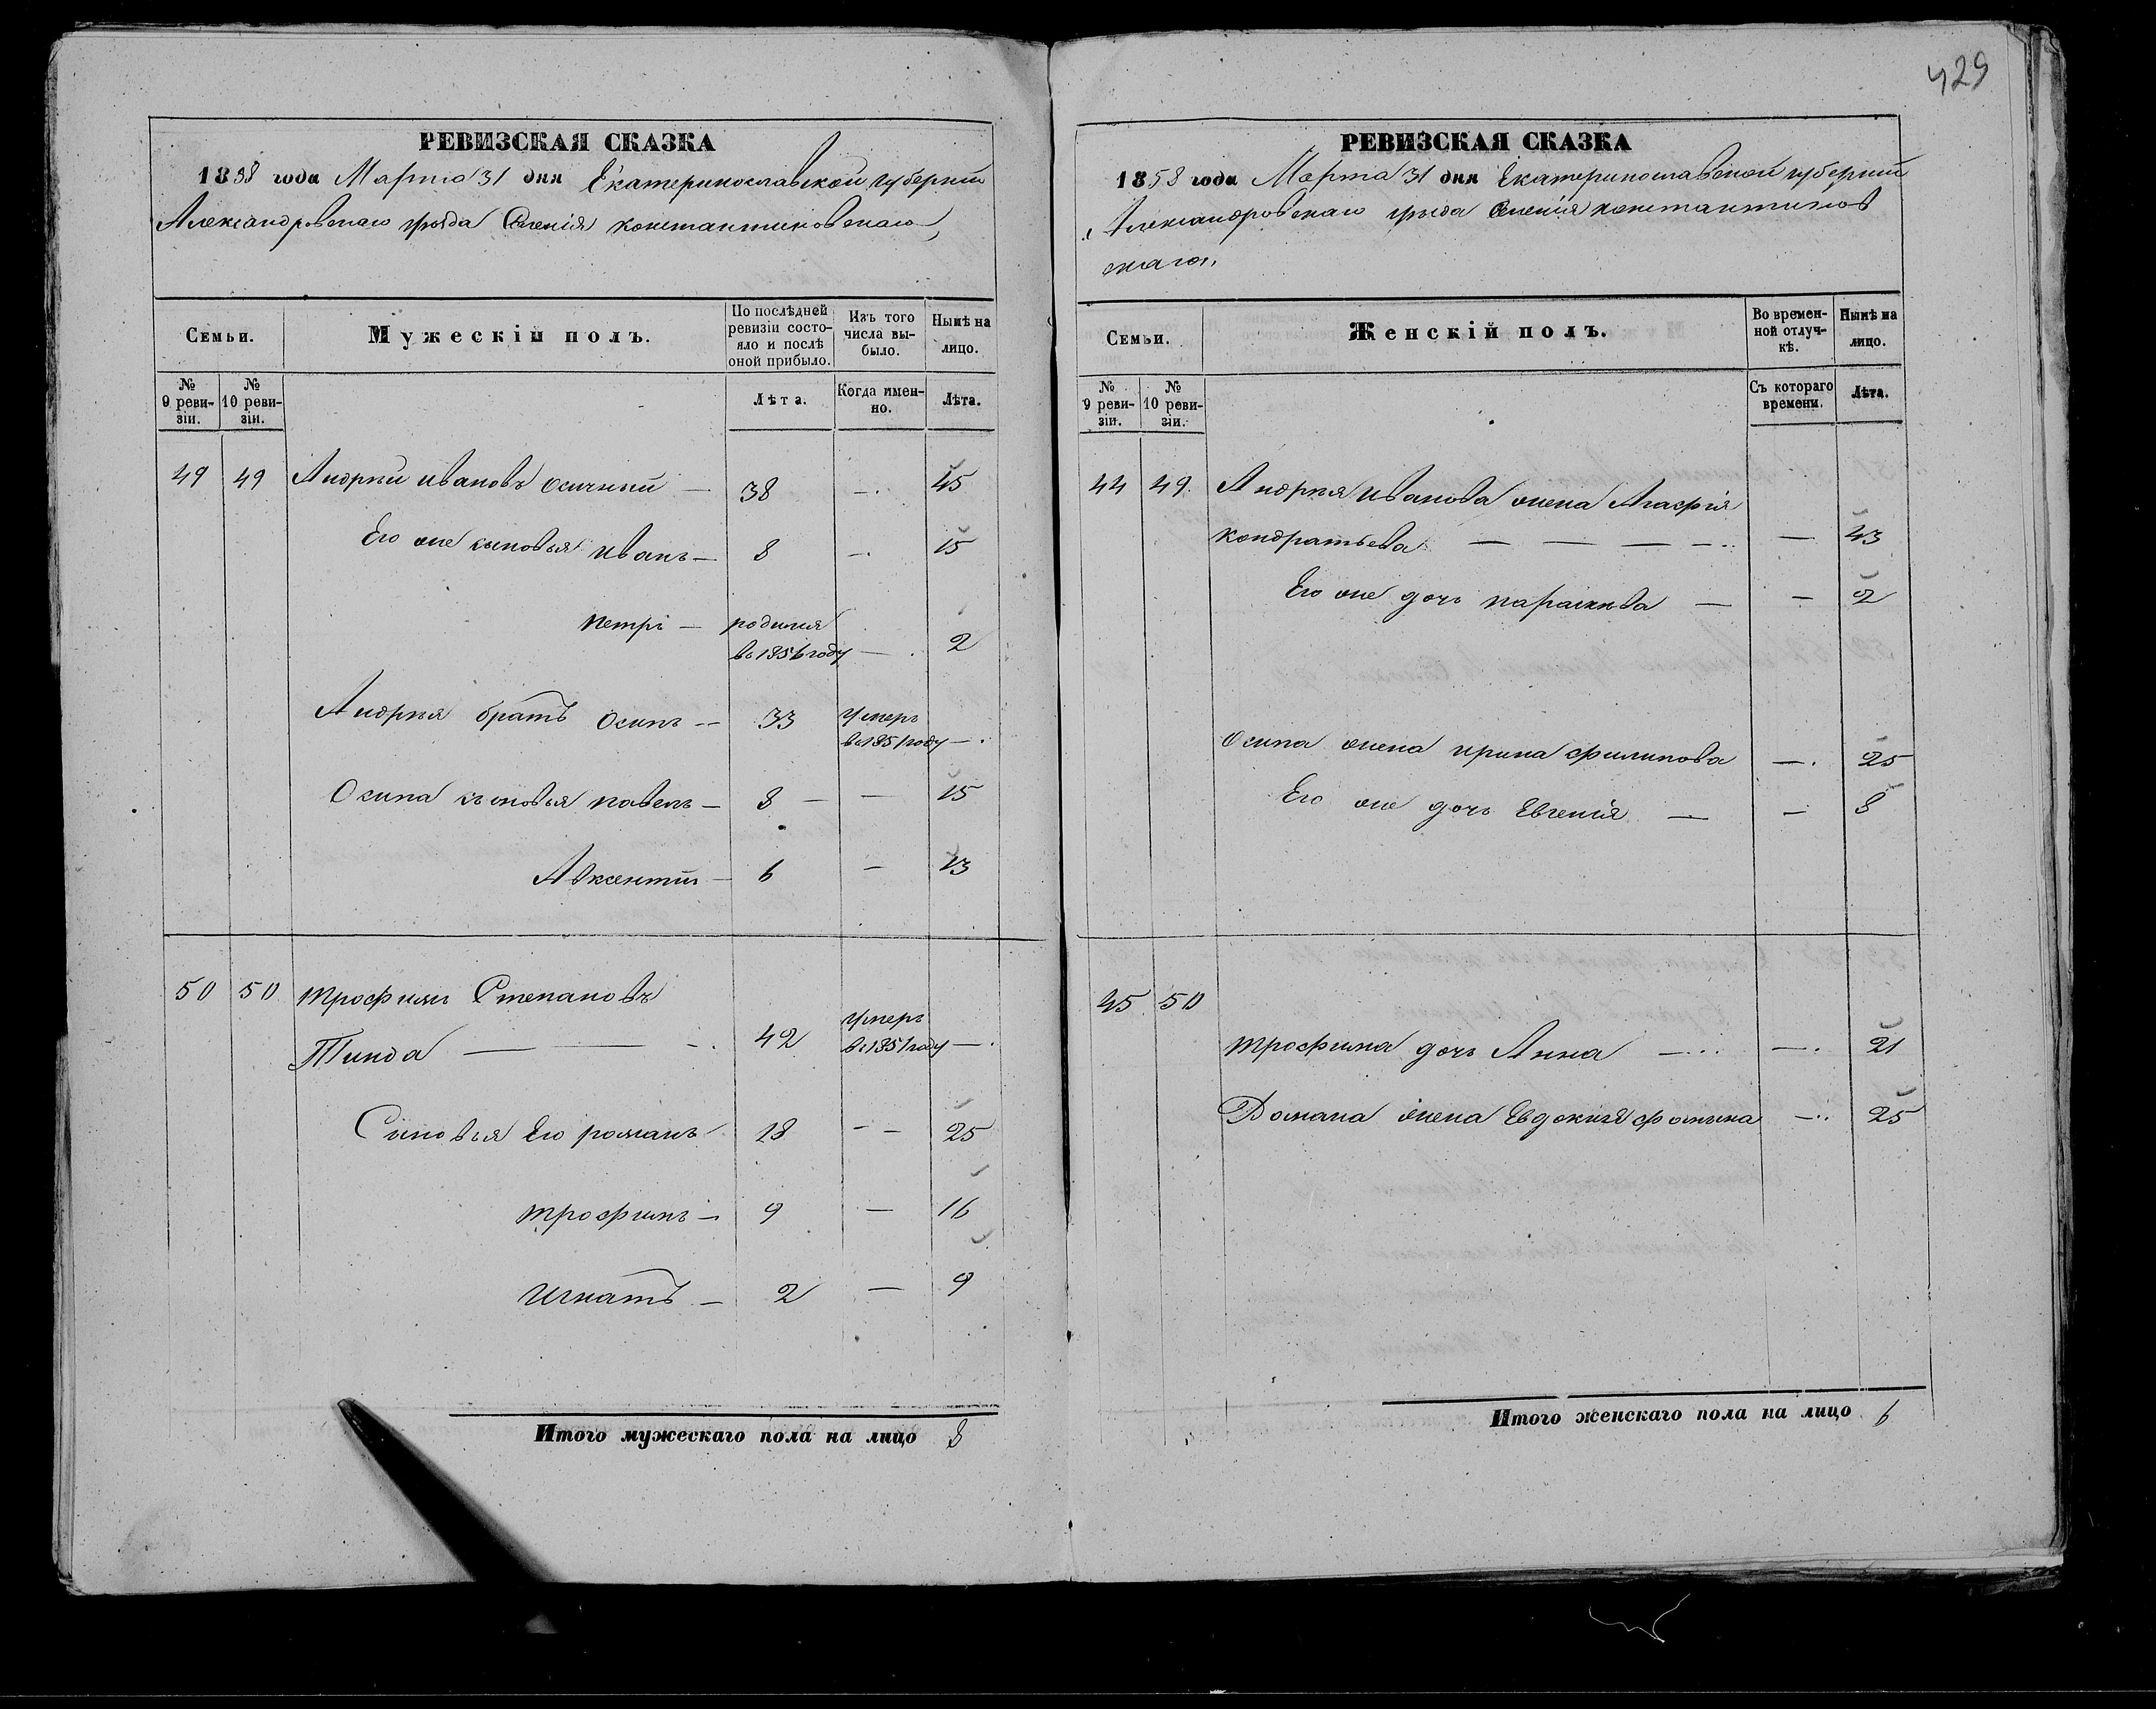 429
РЕВИЗСКАЯ СКАЗКА
1858 года Марта 31 дня Екатеринославской губерніи
Александровскаго уѣзда Селенія Константиновскаго
Семьи.
Мужескій полъ.
По послѣдней ревизіи состояло и послѣ оной прибыло.
Изъ того числа выбыло.
Нынѣ на лицо.
№ 9 ревизіи.
№ 10 ревизіи.
Лѣта.
Когда именно.
Лѣта.
49 49 Андрей Ивановъ Осичный — 38 — 45
Его же сыновья Иванъ — 8 — 15
Петръ — родился
въ 1856 году — 2
Андрея братъ Осипъ — 33 умеръ
въ 1851 году —
Осипа сыновья Павелъ — 8 — — 15
Авксентій — 6 — 13
50 50 Трофимъ Степановъ
Тинда — — 42 умеръ
въ 1851 году —
Синовья Его Романъ 18 — — 25
Трофимъ — 9 — 16
Игнатъ — 2 — 9
Итого мужескаго пола на лицо 8
РЕВИЗСКАЯ СКАЗКА
1858 года Марта 31 дня Екатеринославской губерніи
Александровскаго уѣзда Селенія Константинов
скаго.
Семьи.
Женскій полъ.
Во временной отлучкѣ.
Нынѣ на лицо.
№ 9 ревизіи.
№ 10 ревизіи.
Съ котораго времени.
Лѣта.
44 49 Андрея Иванова жена Агафія
Кондратьева — — — — — 43
Его же дочь Параскева — — 2
Осипа жена Ирина Филипова — 25
Его же дочь Евгенія — — 8
45 50
Трофима дочь Анна — — 21
Романа жена Евдокия Фомина — 25
Итого женскаго пола на лицо 6